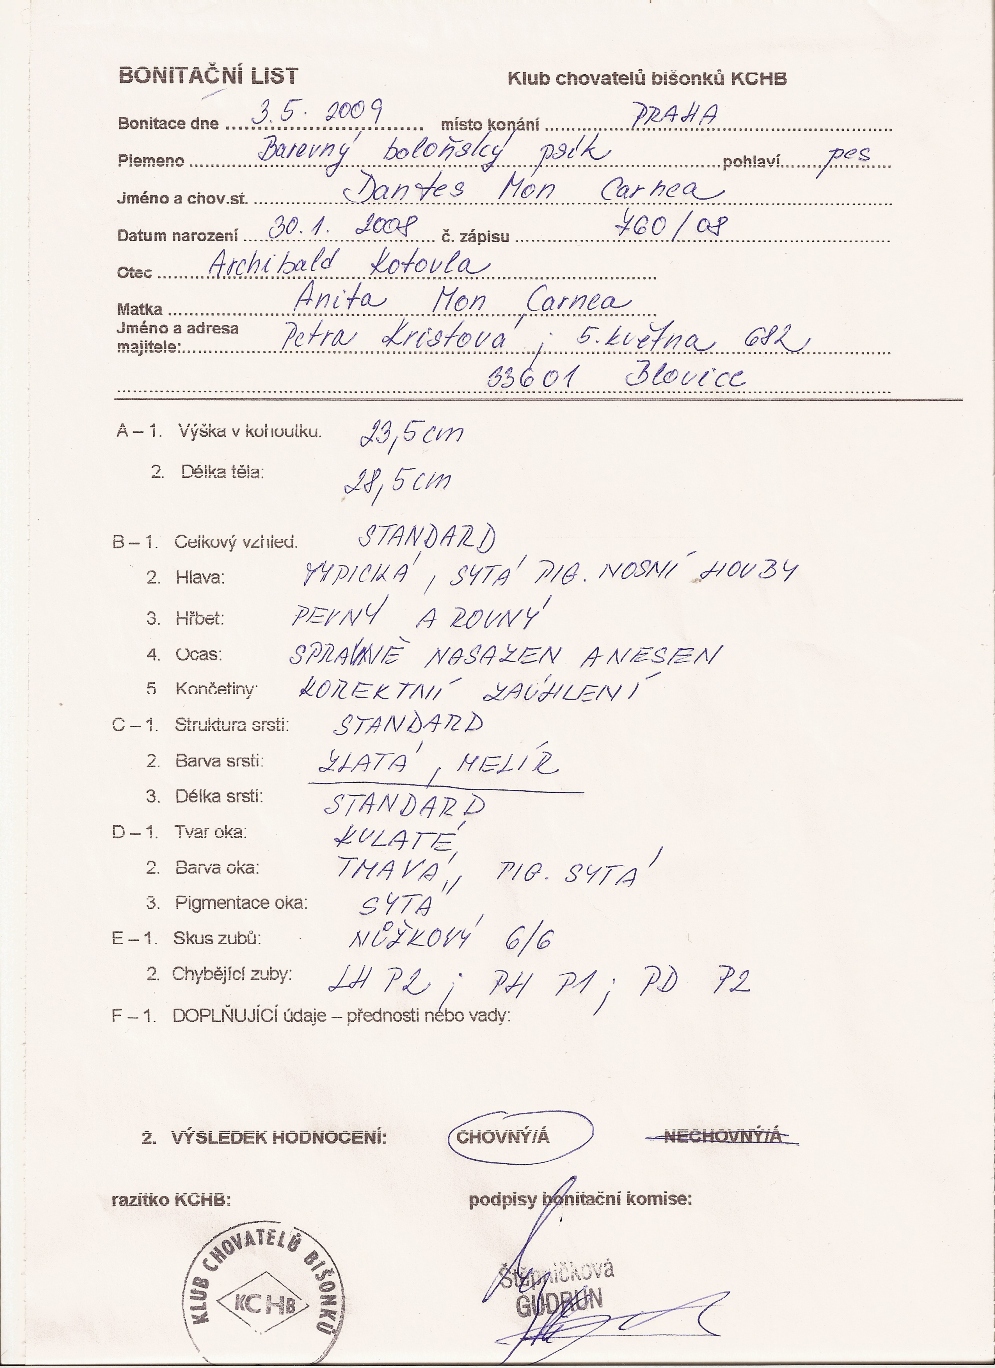 BONITAČNÍ LIST Klub chovatelů bišonků KCHB
Bonitace dne 3.5. 2009 místo konání PRAHA
Plemeno Barevný boloňský psík pohlaví pes
Jméno a chov.st. Dantes Mon Carnea
Datum narození 30.1. 2008 č. zápisu 760/08
Otec Archibald Kotovla
Matka Anita Mon Carnea
Jméno a adresa
majitele: Petra Kristová ; 5. května 682
33601 Blovice
A – 1. Výška v kohoutku. 23,5 cm
2. Délka těla: 28,5 cm
B – 1. Celkový vzhled. STANDARD
2. Hlava: TYPICKÁ, SYTÁ PIG. NOSNÍ HOUBY
3. Hřbet: PEVNÝ A ROVNÝ
4. Ocas: SPRAVNĚ NASAZEN A NESEN
5 Končetiny: KOREKTNÍ ZAÚHLENÍ
C – 1. Struktura srsti: STANDARD
2. Barva srsti: ZLATÁ, MELÍR
3. Délka srsti: STANDARD
D – 1. Tvar oka: KULATÉ
2. Barva oka: TMAVÁ, PIG. SYTÁ
3. Pigmentace oka: SYTÁ
E – 1. Skus zubů: NŮŽKOVÝ 6/6
2. Chybějící zuby: LH P2 ; PH P1 ; PD P2
F – 1. DOPLŇUJÍCÍ údaje – přednosti nebo vady:
2. VÝSLEDEK HODNOCENÍ: CHOVNÝ/Á NECHOVNÝ/Á
razítko KCHB: podpisy bonitační komise:
KLUB CHOVATELŮ BIŠONKŮ
KCHB
Štěpničková
GUDRUN